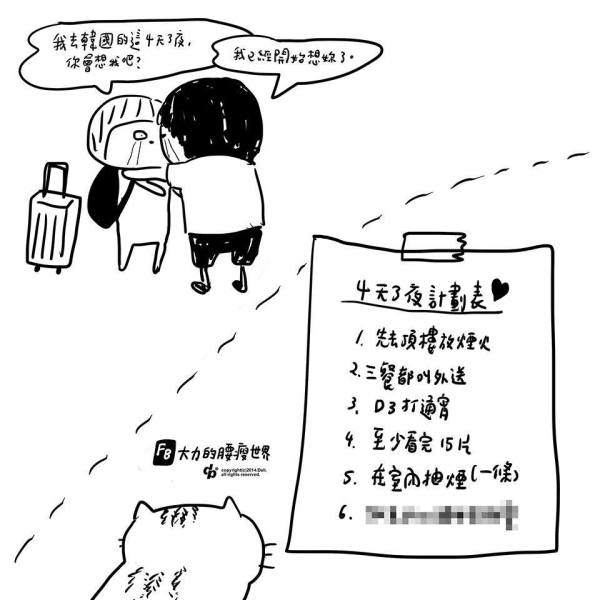 我去韓國的這4天3夜,
你會想我吧?
我已經開始想妳了。
4天3夜計劃表
1. 先去頂樓放煙火
2. 三餐都叫外送
3. D3打通宵
4. 至少看完15片
5. 在室內抽煙(一條)
6.
FB 大力的腰瘦世界
copyright(c)2014.Dali.
all rights reserved.